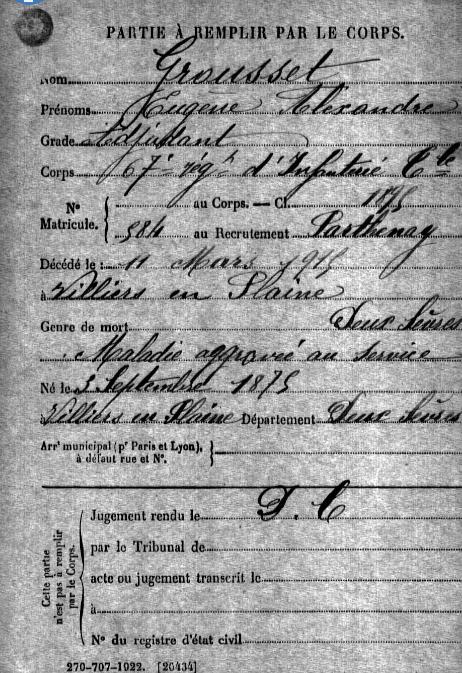 PARTIE À REMPLIR PAR LE CORPS.
Nom Grousset
Prénoms Eugène Alexandre
Grade Adjudant
Corps 67e rég t d'Infanterie Cle
N° Matricule. { au Corps. — Cl. 1895
584 au Recrutement Parthenay
Décédé le : 11 Mars
à Villiers en Plaine
Deux Sèvres
Genre de mort
Maladie aggravée au service
Né le 3 Septembre 1875
à Villiers en Plaine Département Deux Sèvres
Arrt municipal (pr Paris et Lyon), }
à défaut rue et N°.
Cette partie n'est pas à remplir par le Corps.
Jugement rendu le D. C
par le Tribunal de
acte ou jugement transcrit le
à
N° du registre d'état civil
270-707-1922. [26434]